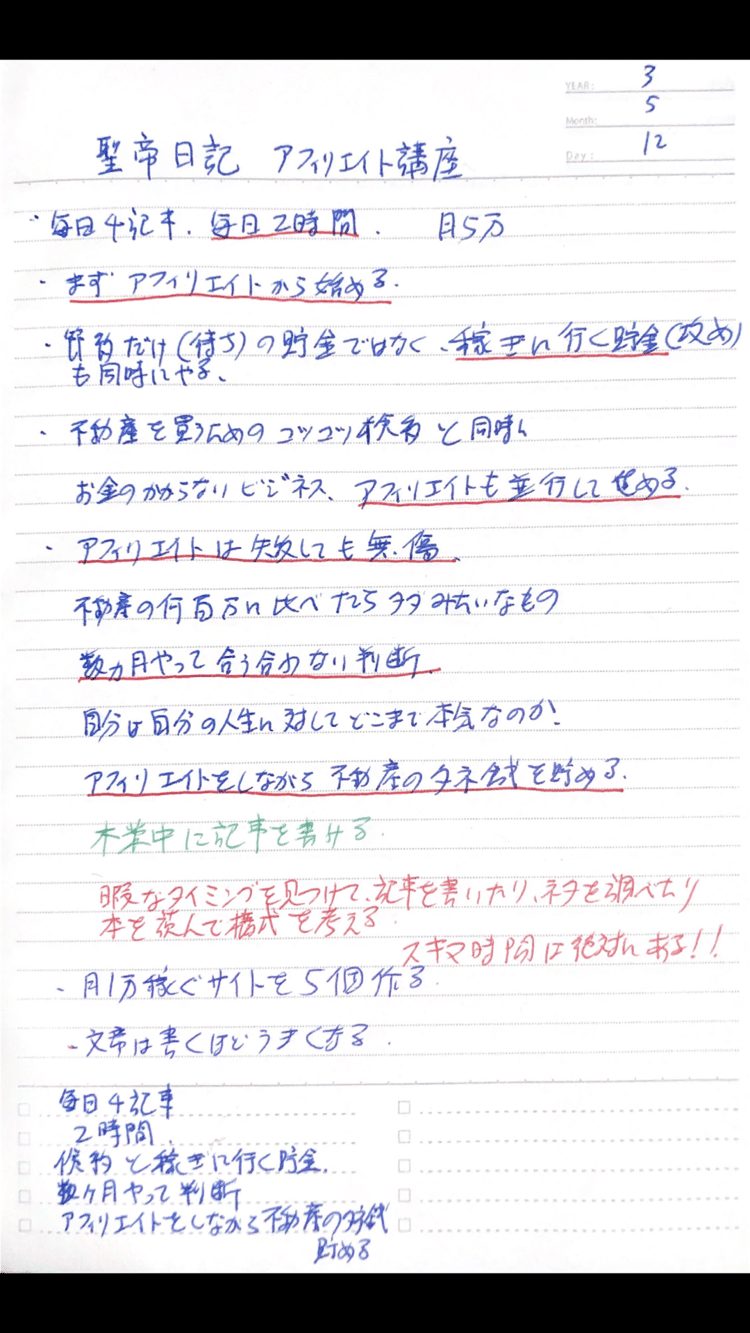 YEAR: 3
Month: 5
Day: 12
聖帝日記 アフィリエイト講座
・毎日4記事、毎日2時間. 月5万
・まず アフィリエイトから始める.
・節約だけ(待ち)の貯金ではなく、稼ぎに行く貯金(攻め)
も同時にやる、
・不動産を買うためのコツコツ検約と同時に
お金のかからないビジネス、アフィリエイトも並行して進める.
・アフィリエイトは失敗しても無傷、
不動産の何百万に比べたらタダみたいなもの
数カ月やって合う合わない判断.
自分は自分の人生に対してどこまで本気なのか.
アフィリエイトをしながら不動産のタネ銭を貯める.
本業中に記事を書ける.
暇なタイミングを見つけて、記事を書いたり、ネタを調べたり
本を読んで構成を考える.
スキマ時間は絶対にある!!
・月1万稼ぐサイトを5個作る.
・文章は書くほどうまくなる.
毎日4記事
2時間.
倹約と稼ぎに行く貯金.
数ヶ月やって判断
アフィリエイトをしながら不動産のタネ銭
貯める